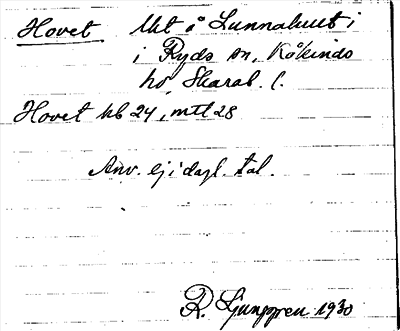 Hovet Utt å Lunnahult i
i Ryds sn, Kåkinds
hd, Skarab. l.
Hovet kb 24, mtl 28
Anv. ej i dagl. tal.
R. Ljunggren 1930